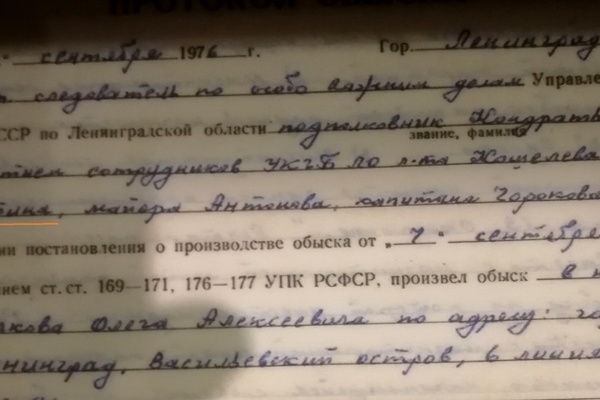 ПРОТОКОЛ ОБЫСКА
" сентября 1976 г. Гор. Ленинград
ст. следователь по особо важным делам Управле
ССР по Ленинградской области подполковник Кондратв
звание, фамилия
стием сотрудников УКГБ ЛО л-та Кошелева
тина, майора Антонова, капитана Горокова
ии постановления о производстве обыска от „ 7 " сентября
ием ст.ст. 169—171, 176—177 УПК РСФСР, произвел обыск в
лкова Олега Алексеевича по адресу: го
нинград, Васильевский остров, 6 линия